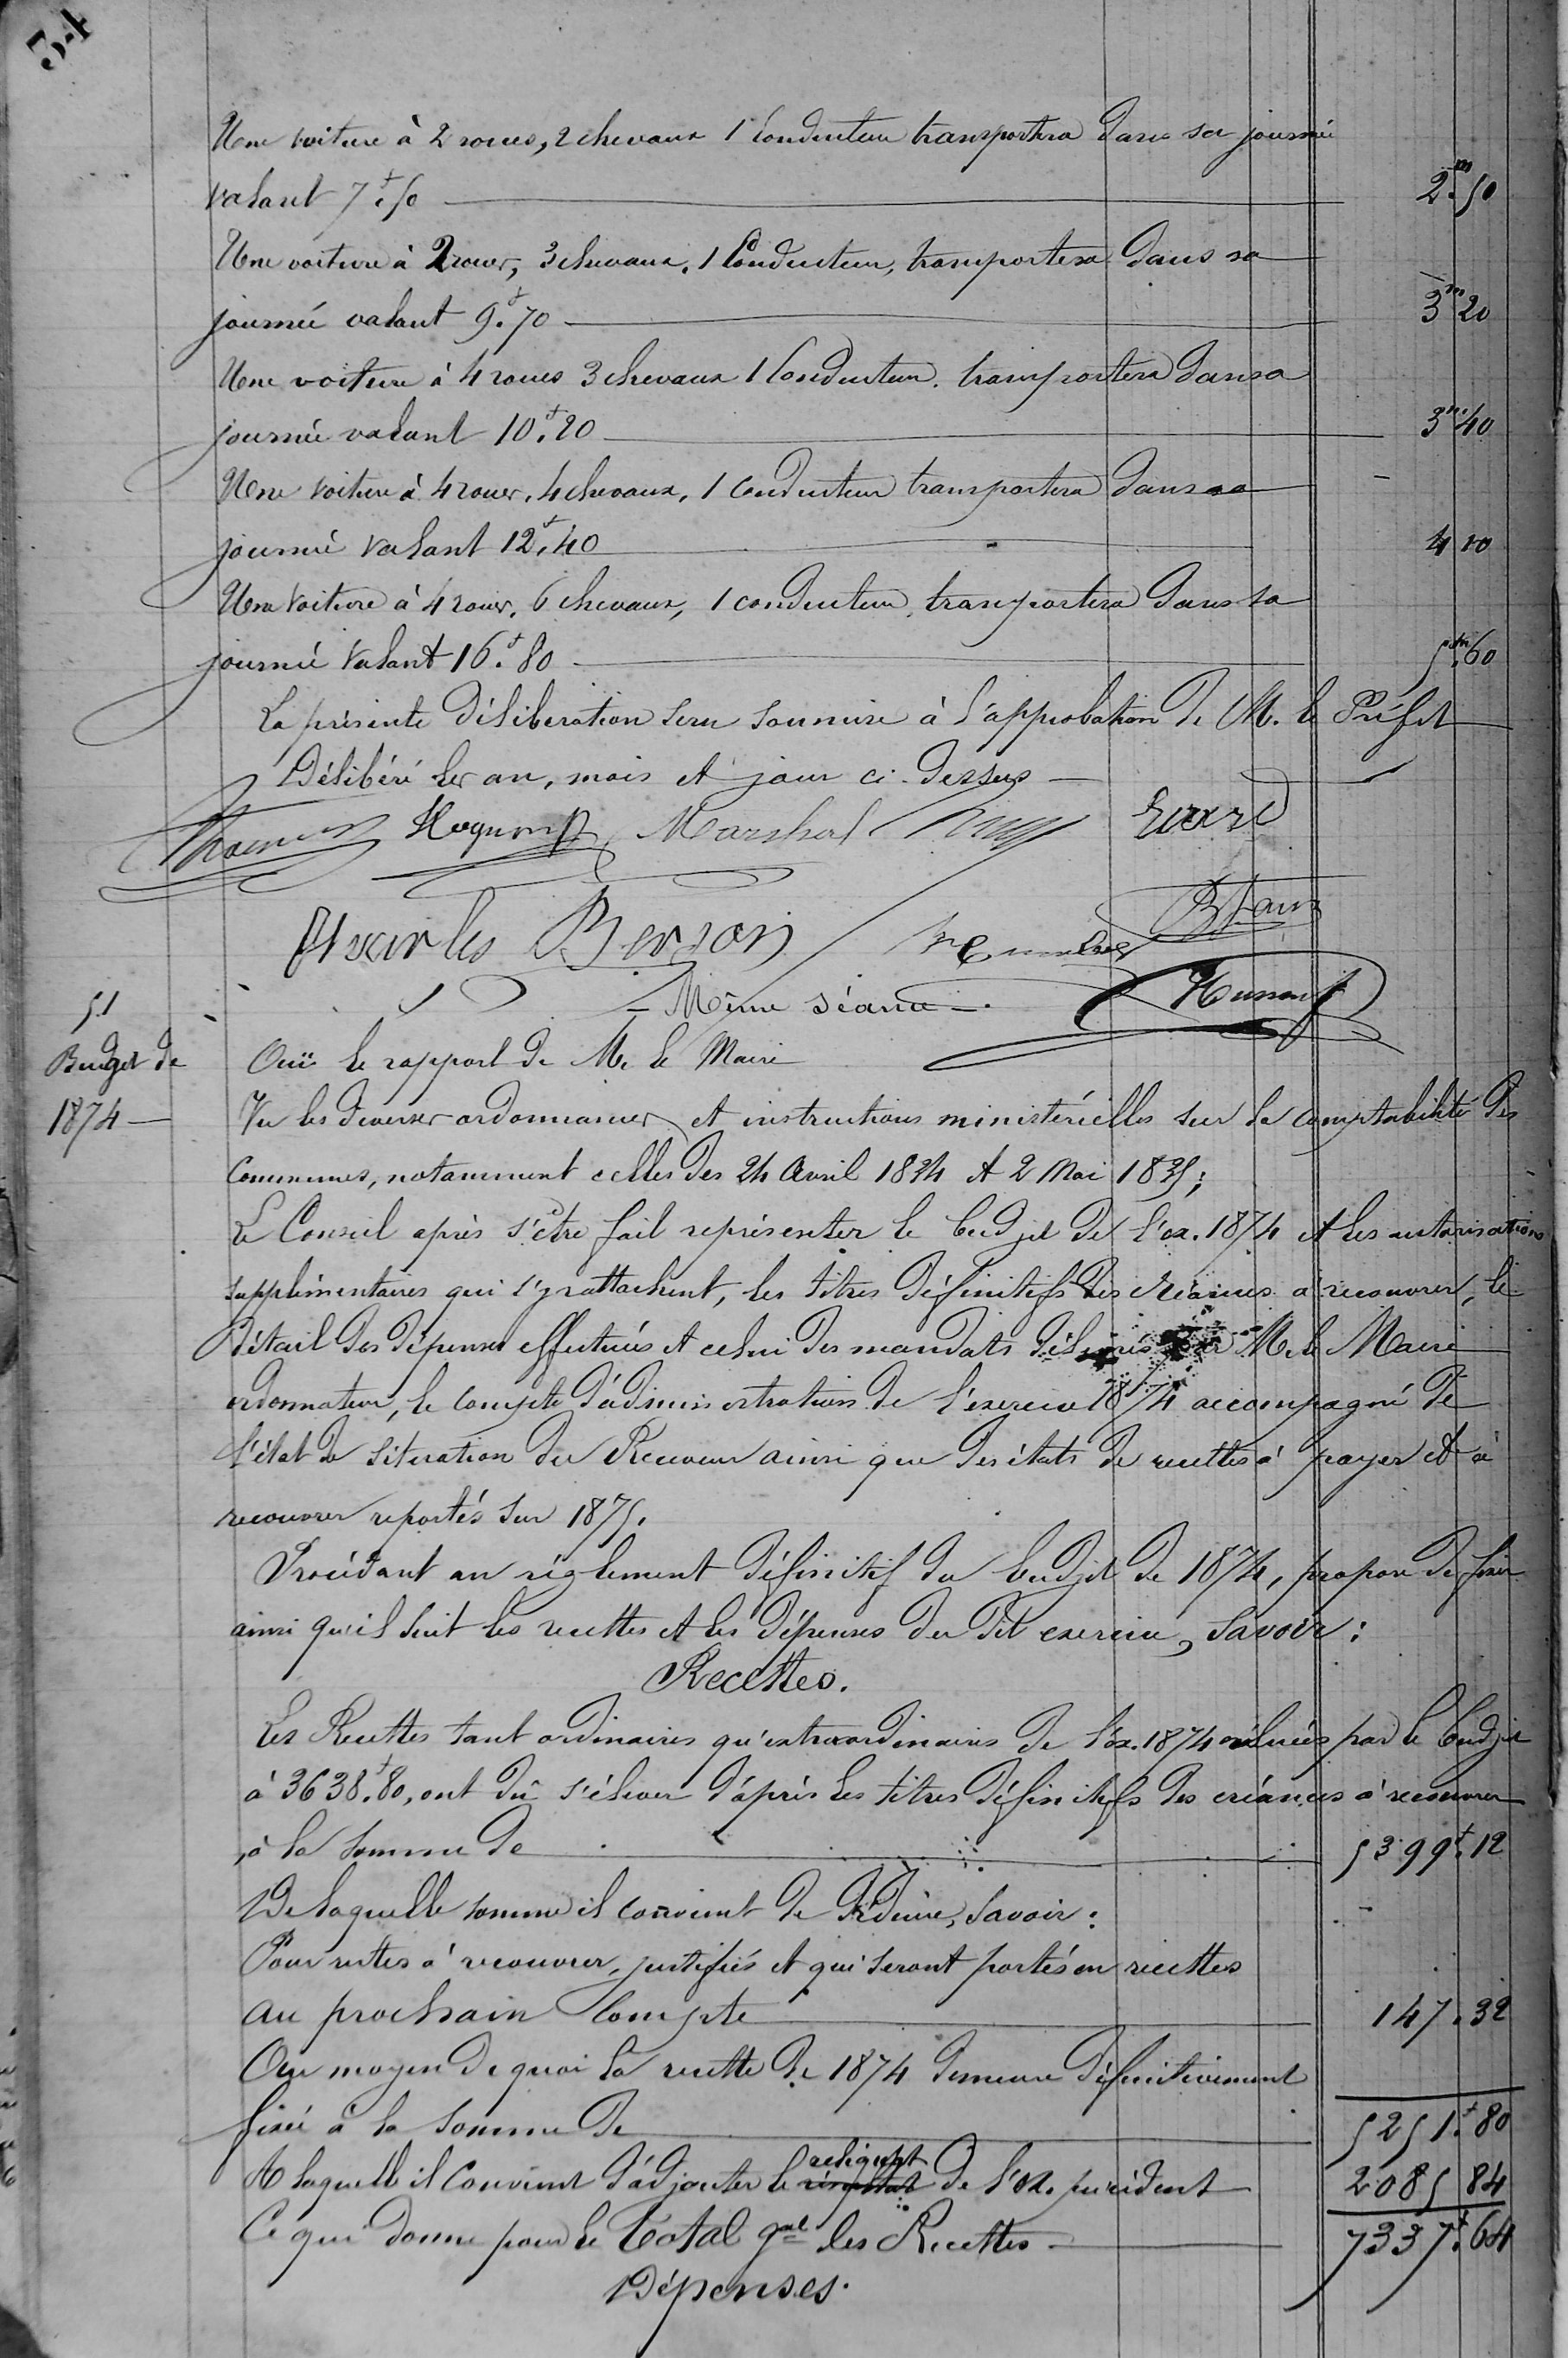 34
Une voiture à 2 roues, 2 chevaux 1 Conducteur transportera dans sa journée
valant 7f.50 2.m50
Une voiture à 2 roues, 3 chevaux, 1 Conducteur, transportera dans sa
journée valant 9f.70 3m20
Une voiture à 4 roues 3 chevaux 1 Conducteur. transportera dans sa
journée valant 10f.20 3m.40
Une voiture à 4 roues, 4 chevaux, 1 conducteur transportera dans sa
journée valant 12f.40 4 10
Une voiture à 4 roues, 6 chevaux, 1 conducteur, transportera dans sa
journée valant 16f.80 5m.60
La présente délibération sera soumise à l'approbation de M. le Préfet
Délibéré les an, mois et jour ci-dessus
Marshal Erard
Charles Berson
51
Budget de
1874
Même séance
Ouï le rapport de M. le Maire
Vu les diverses ordonnances et instructions ministérielles sur la comptabilité des
Communes, notamment celles des 24 Avril 1834 et 2 Mai 1835;
Le Conseil après s'être fait représenter le budjet de l'ex. 1874 et les autorisations
supplémentaires qui s'y rattachent, les titres définitifs des créances à recouvrer, le
détail des dépenses effectuées et celui des mandats délivrés par M. le Maire
ordonnateur, le compte d'administration de l'exercice 1874 accompagné de
l'état de situation du Receveur ainsi que des états de recettes à payer et à
recouvrer reportés sur 1875.
Procédant au réglement définitif du budjet de 1874, propose de fixer
ainsi qu'il suit les recettes et les dépenses du dit exercice, savoir:
Recettes.
Les Recettes tant ordinaires qu'extraordinaires de l'ex. 1874 évaluées par le budjet
à 3638f.80, ont dû s'élever d'après les titres définitifs des créances à recouvrer
à la somme de 5399f.12
De laquelle somme il convient de déduire, savoir:
Pour restes à recouvrer, justifiés et qui seront portés en recettes
au prochain Compte 147.32
Au moyen de quoi la recette de 1874 demeure définitivement
fixée à la somme de 5251f.80
A laquelle il convient d'adjouter le reliquat de l'ex. précédent 2085 84
Ce qui donne pour le Total gal les Recettes 7337f.64
Dépenses.